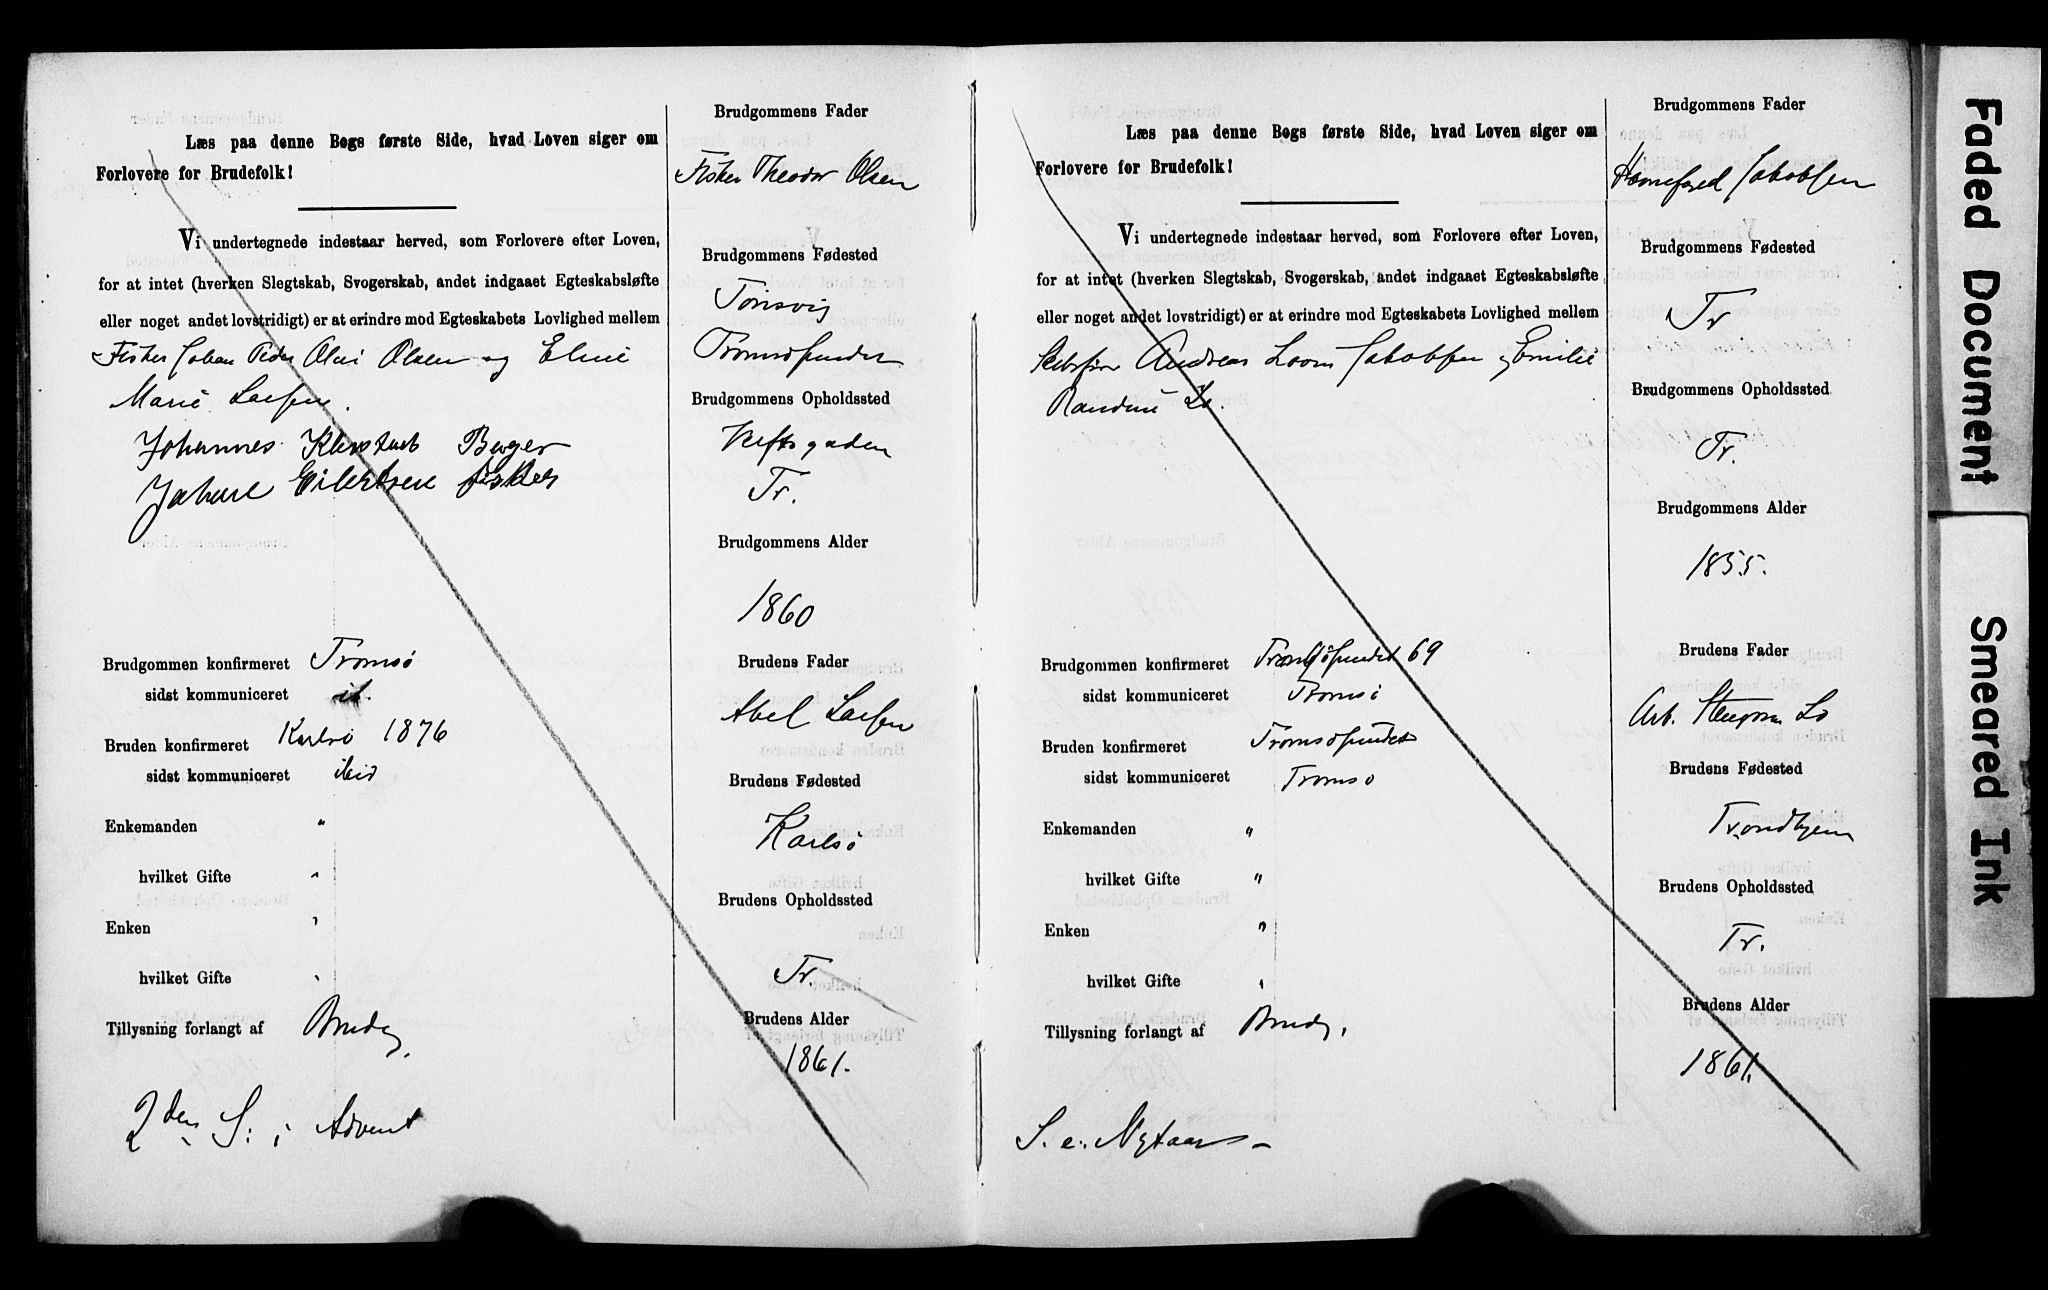 Læs paa denne Bogs første Side, hvad Loven siger om
Forlovere for Brudefolk!
Vi undertegnede indestaar herved, som Forlovere efter Loven,
for at intet (hverken Slegtskab, Svogerskab, andet indgaaet Egteskabsløfte
eller noget andet lovstridigt) er at erindre mod Egteskabets Lovlighed mellem
Fisker Johan Peder Olai Olsen og Eline
Marie Larsen.
Johannes Berger
Johan Eilertsen fisker
Brudgommen konfirmeret Tromsø
sidst kommuniceret
Bruden konfirmeret Karlsø 1876
sidst kommuniceret ibid
Enkemanden "
hvilket Gifte "
Enken "
hvilket Gifte "
Tillysning forlangt af Brudg.
2den S. i Advent
Brudgommens Fader
Fisker Theodor Olsen
Brudgommens Fødested
Tønsvig
Tromsøsundet
Brudgommens Opholdssted
Verftsgaden
Tr.
Brudgommens Alder
1860
Brudens Fader
Abel Larsen
Brudens Fødested
Karlsø
Brudens Opholdssted
Tr.
Brudens Alder
1861.
Læs paa denne Bogs første Side, hvad Loven siger om
Forlovere for Brudefolk!
Vi undertegnede indestaar herved, som Forlovere efter Loven,
for at intet (hverken Slegtskab, Svogerskab, andet indgaaet Egteskabsløfte
eller noget andet lovstridigt) er at erindre mod Egteskabets Lovlighed mellem
Andreas Jakobsen og Emilie
Randine Lo.
Brudgommen konfirmeret Tromsøsundet 69
sidst kommuniceret Tromsø
Bruden konfirmeret Tromsøsundet
sidst kommuniceret Tromsø
Enkemanden "
hvilket Gifte "
Enken "
hvilket Gifte "
Tillysning forlangt af Brudg.
S. e. Nytaar
Brudgommens Fader
Jakobsen
Brudgommens Fødested
Tr
Brudgommens Opholdssted
Tr.
Brudgommens Alder
1855.
Brudens Fader
Arb. Lo
Brudens Fødested
Trondhjem
Brudens Opholdssted
Tr.
Brudens Alder
1861.
Faded Document
Smeared Ink